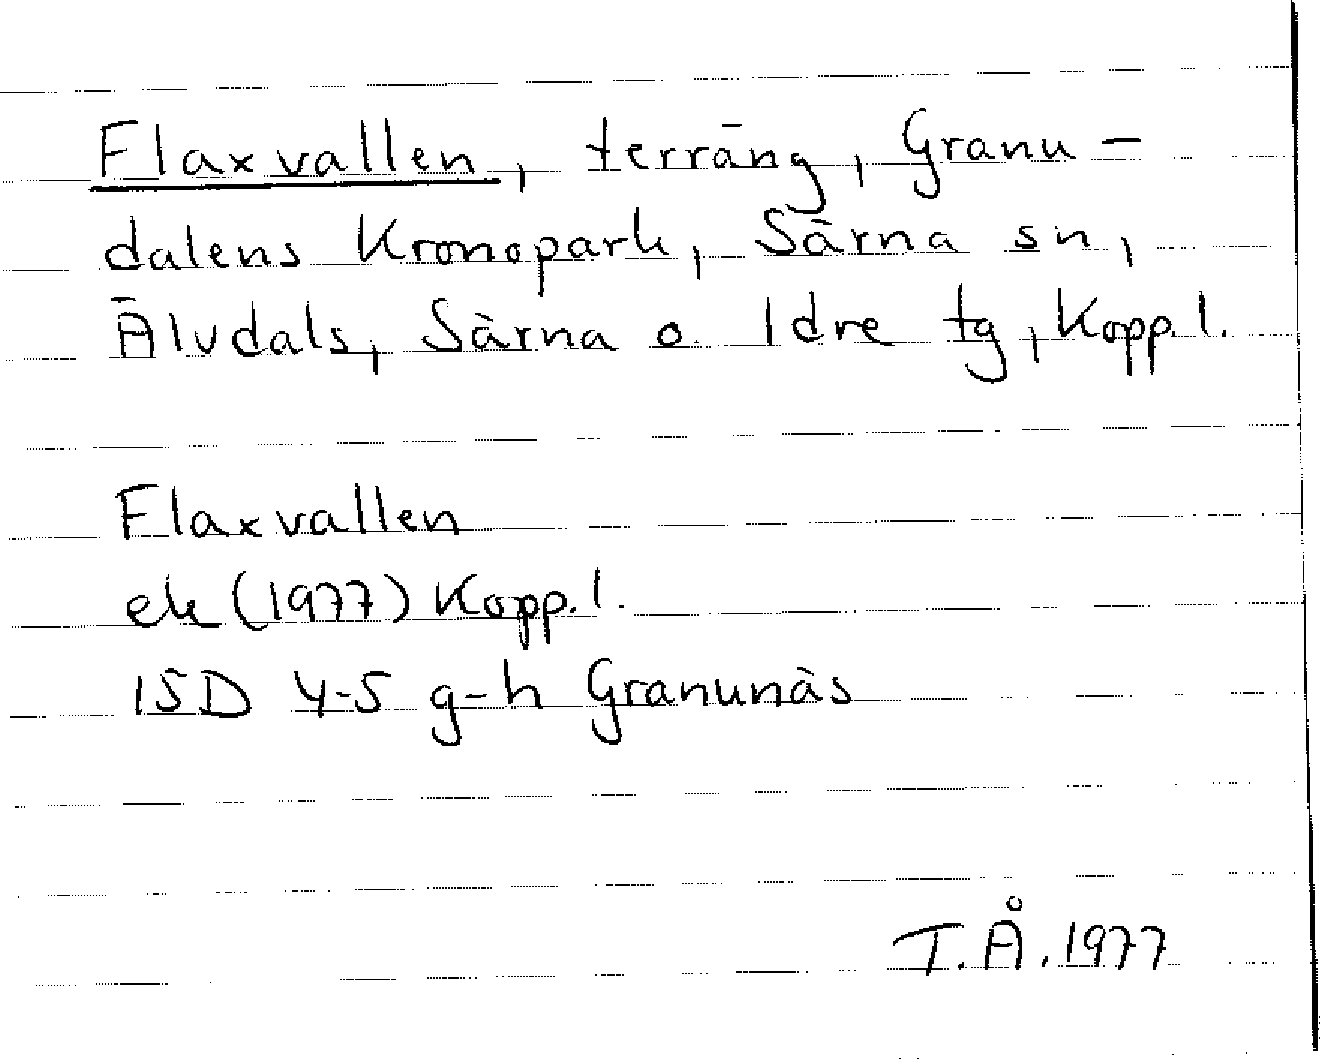 Flaxvallen, terräng, Granu-
dalens Kronopark, Särna sn,
Älvdals, Särna o. Idre tg, Kopp. l.
Flaxvallen
ek (1977) Kopp. l.
15D 4-5 g-h Granunäs
T.Å. 1977